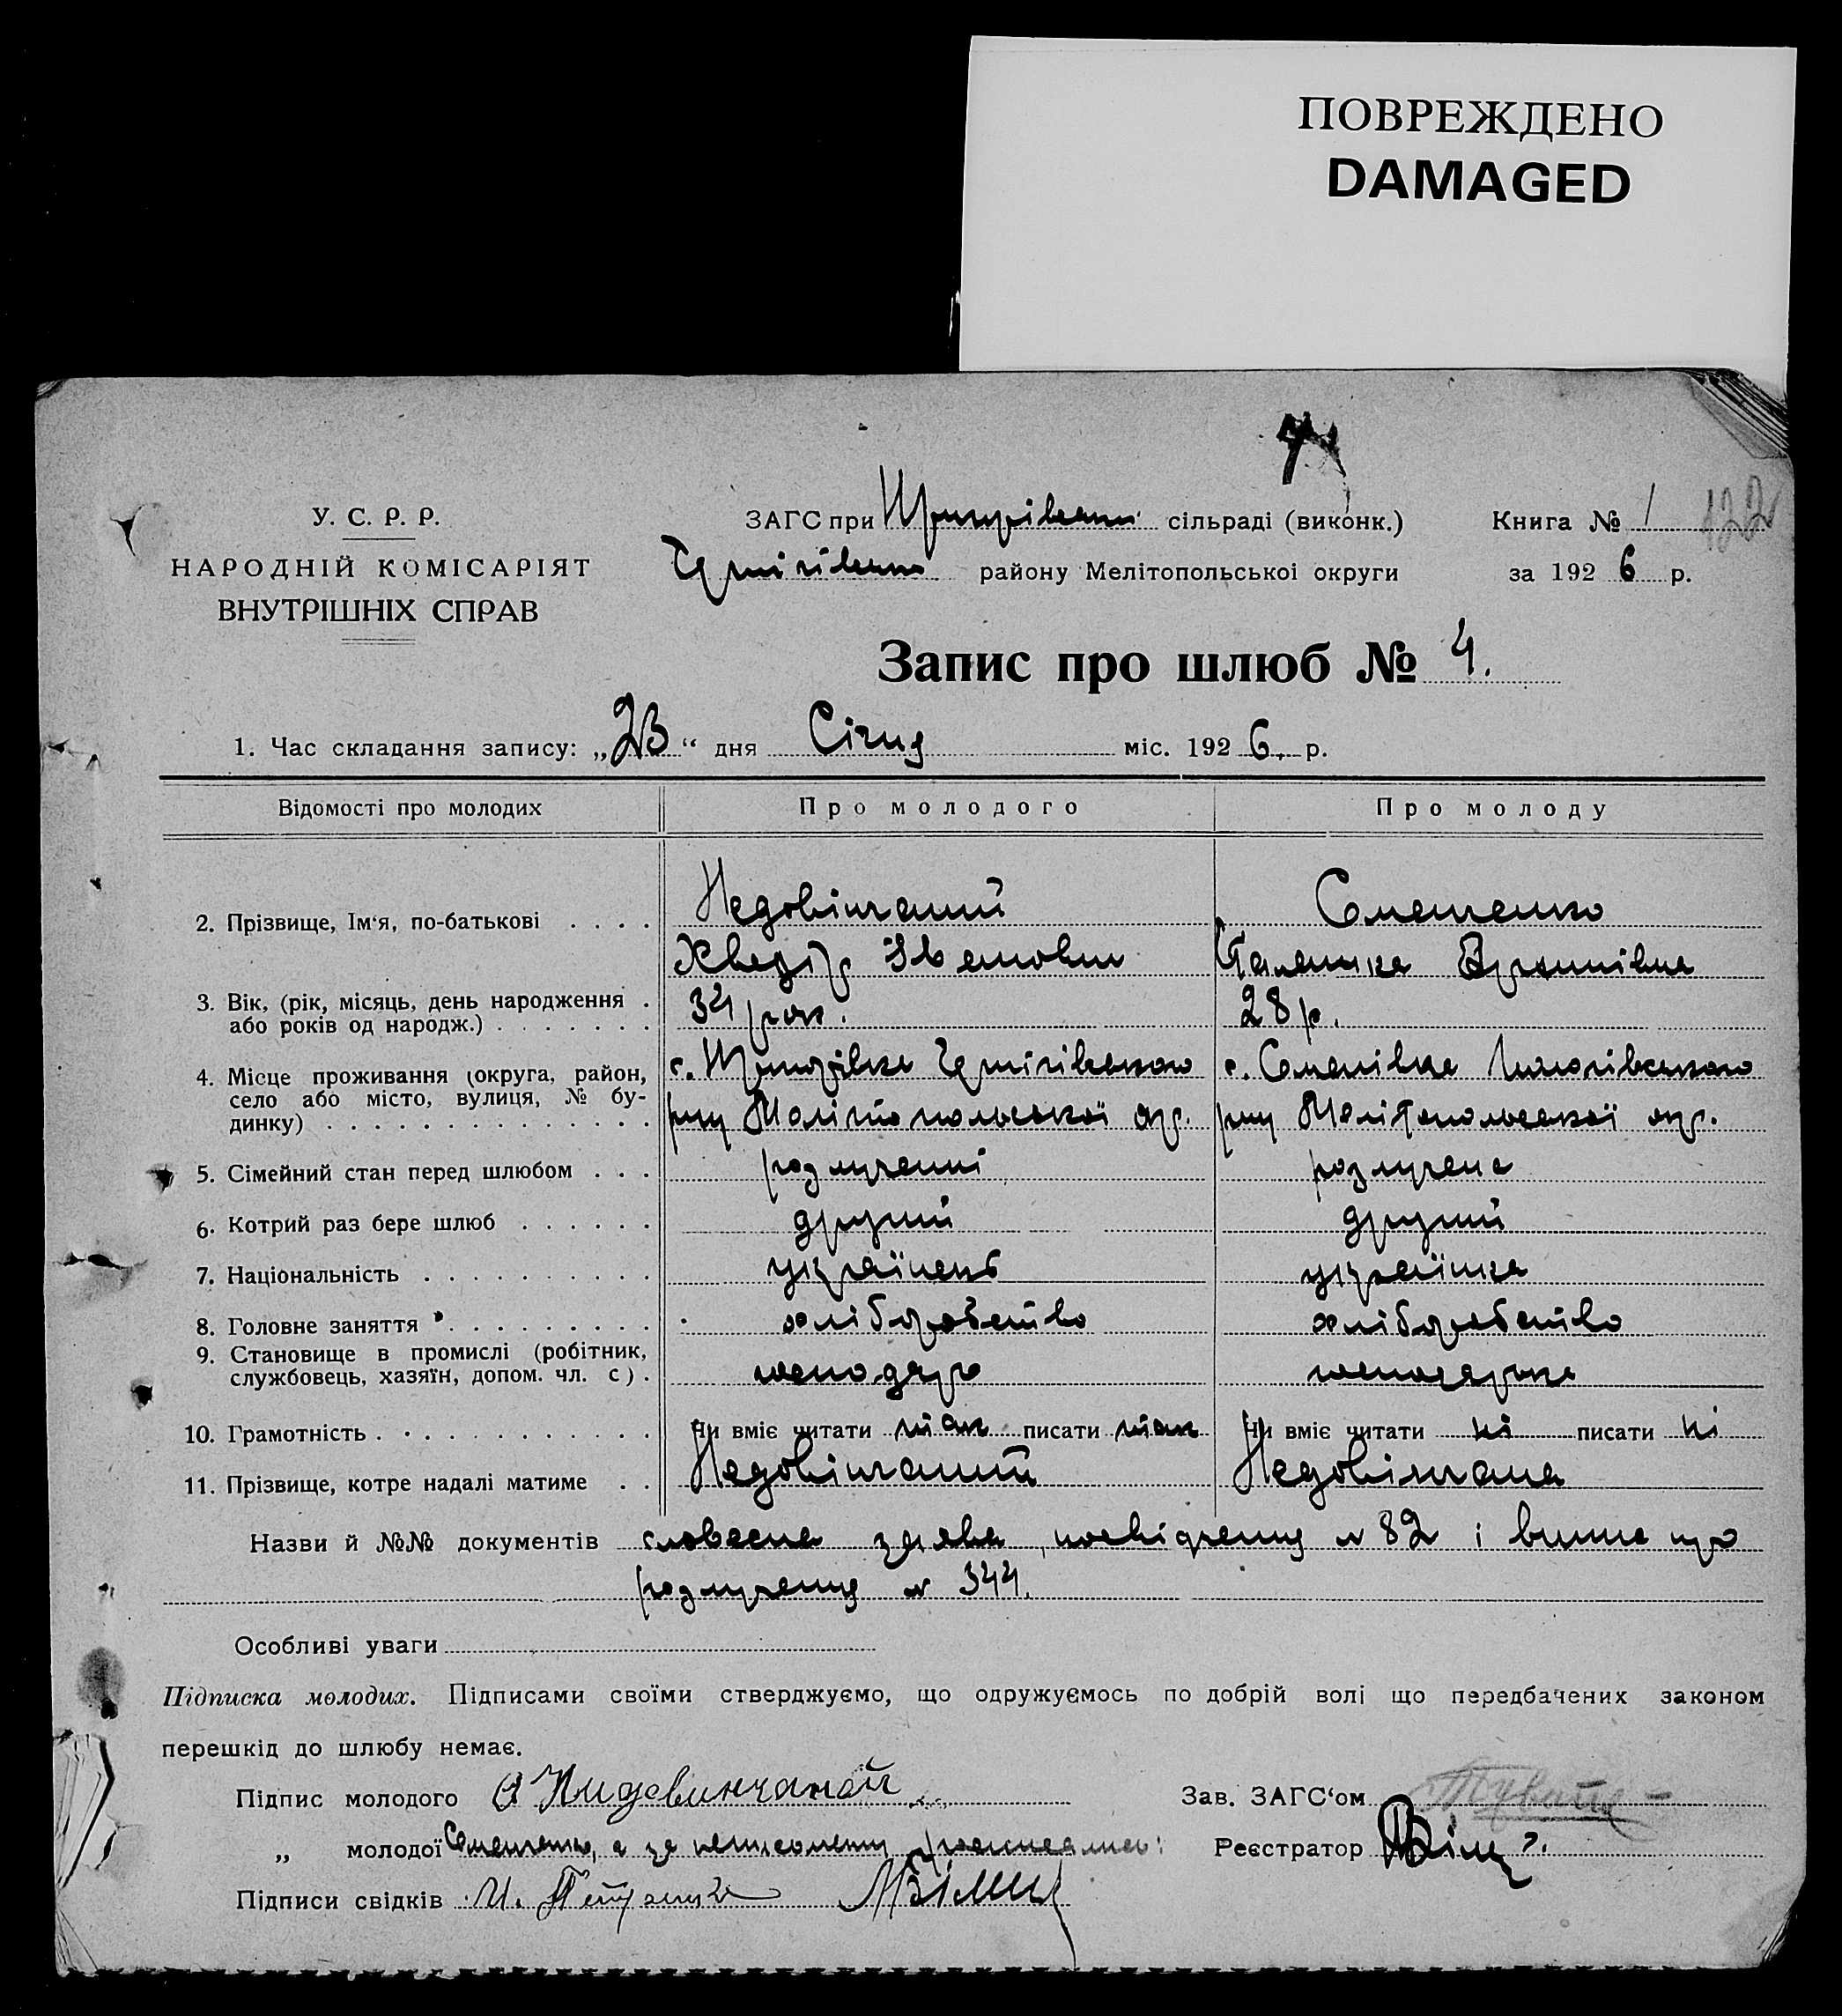 ПОВРЕЖДЕНО
DAMAGED
У. С. Р. Р.
НАРОДНІЙ КОМІСАРІЯТ
ВНУТРІШНІХ СПРАВ
ЗАГС при сільраді (виконк.)
району Мелітопольської округи
Книга № 1 122
за 1926 р.
Запис про шлюб № 4.
1. Час складання запису: „23“ дня Січня міс. 1926. р.
Відомості про молодих Про молодого Про молоду
2. Прізвище, Ім‘я, по-батькові . . . . Недовінчаний Семененко
Хведір Іванович Палажка
3. Вік, (рік, місяць, день народження . 34 рок. 28 р.
або років од народж.) . . . . . . .
4. Місце проживання (округа, район, с. Чернігівського с. Семенівка
село або місто, вулиця, № бу- р-ну Мелітопольської окр. р-ну Мелітопольської окр.
динку) . . . . . . . . . . . . . .
5. Сімейний стан перед шлюбом . . . розлученні розлучена
6. Котрий раз бере шлюб . . . . . . другий другий
7. Національність . . . . . . . . . . українець українка
8. Головне заняття . . . . . . . . . хліборобство хліборобство
9. Становище в промислі (робітник,
службовець, хазяїн, допом. чл. с) . господар господарка
10. Грамотність . . . . . . . . . . . . Чи вміє читати так писати так Чи вміє читати ні писати ні
11. Прізвище, котре надалі матиме . . Недовінчаний Недовінчана
Назви й №№ документів словесна заява, посвідчення № 82 і виписка про
розлучення № 344.
Особливі уваги
Підписка молодих. Підписами своїми стверджуємо, що одружуємось по добрій волі що передбачених законом
перешкід до шлюбу немає.
Підпис молодого Зав. ЗАГС‘ом
„ молодої Семененко, а за неписьменну Реєстратор
Підписи свідків